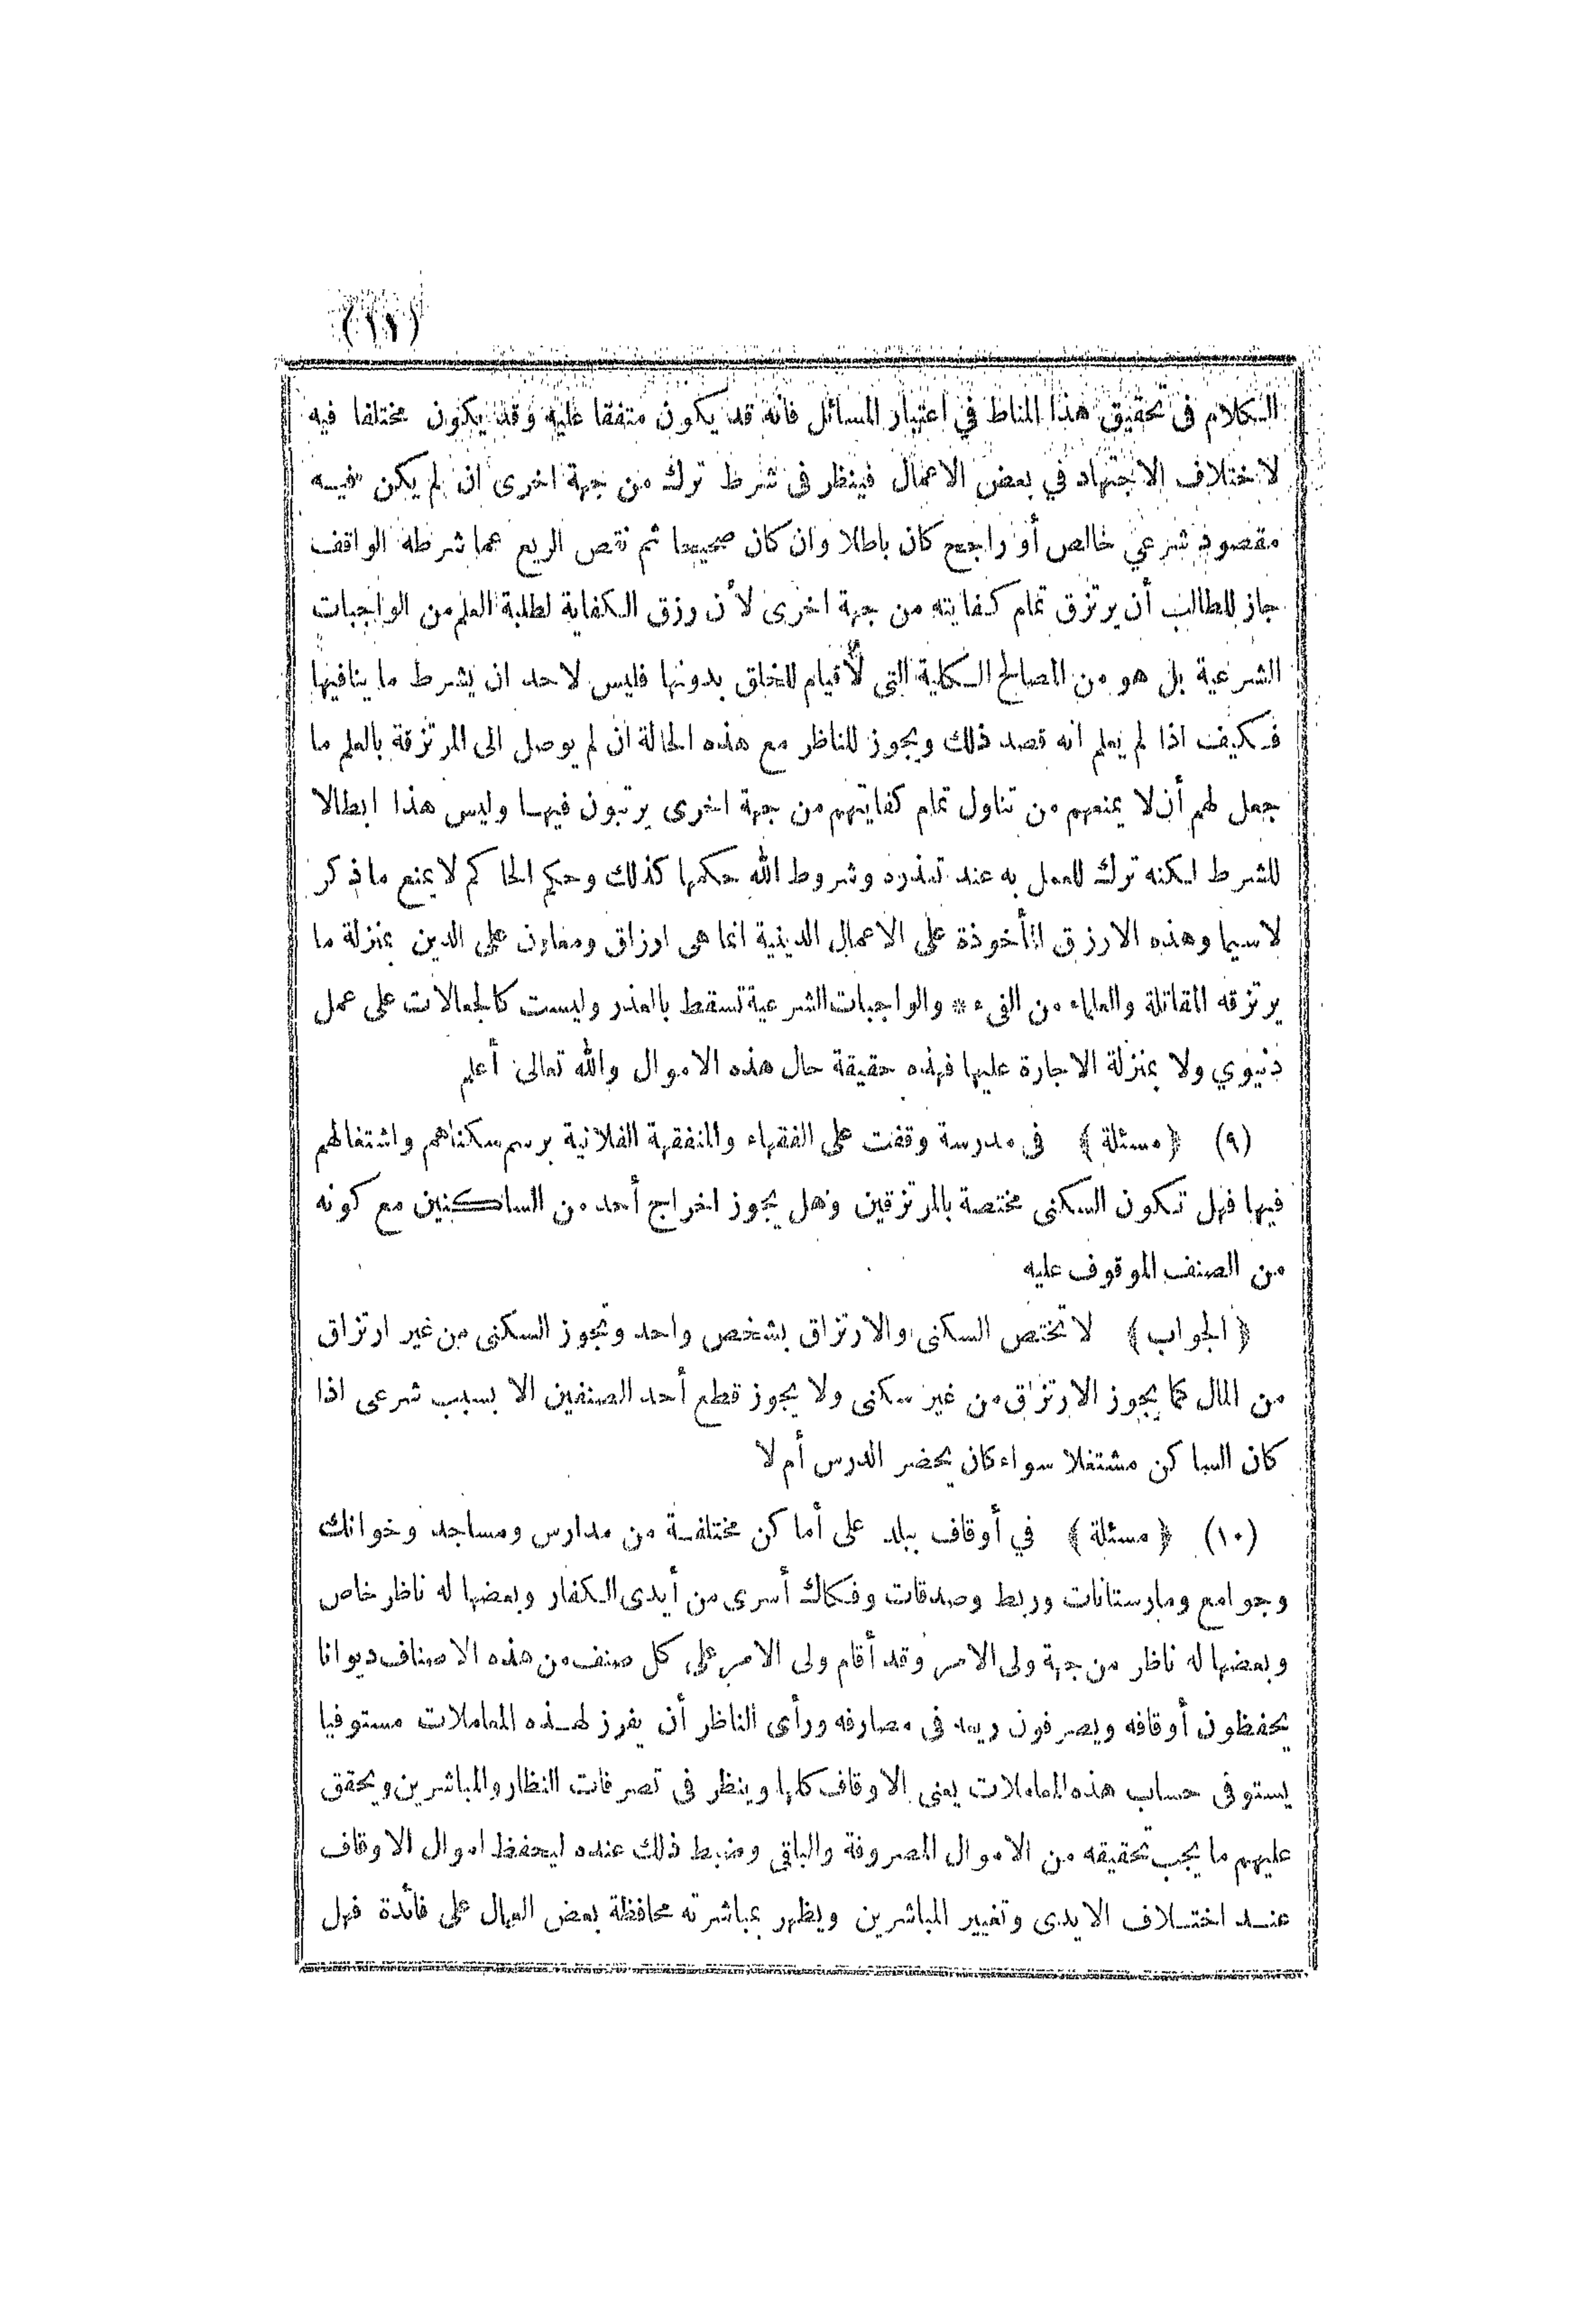 الكلام فى تحقيق هذا المناط في اعتبار المسائل فانه قد يكون متفقا عليه وقد يكون مختلفا فيه
لاختلاف الاجتهاد في بعض الاعمال فينظر فى شرط ترك من جهة اخرى ان لم يكن فيه
مقصود شرعي خالص أو راجح كان باطلا وان كان صحيحا ثم نقص الريع عما شرطه الواقف
جاز للطالب أن يرتزق تمام كفايته من جهة اخرى لأن رزق الكفاية لطلبة العلم من الواجبات
الشرعية بل هو من المصالح الكلية التى لا قيام للخلق بدونها فليس لاحد ان يشرط ما ينافيها
فكيف اذا لم يعلم انه قصد ذلك ويجوز للناظر مع هذه الحالة ان لم يوصل الى المرتزقة بالعلم ما
جعل لهم أن لا يمنعهم من تناول تمام كفايتهم من جهة اخرى يرتبون فيها وليس هذا ابطالا
للشرط لكنه ترك للعمل به عند تعذره وشروط الله حكمها كذلك وحكم الحاكم لا يمنع ما ذكر
لا سيما وهذه الارزق المأخوذة على الاعمال الدينية انما هى ارزاق ومعاون على الدين بمنزلة ما
يرتزقه المقاتلة والعلماء من الفىء * والواجبات الشرعية تسقط بالعذر وليست كالجعالات على عمل
دنيوي ولا بمنزلة الاجارة عليها فهذه حقيقة حال هذه الاموال والله تعالى أعلم
(٩) ﴿ مسئلة ﴾ فى مدرسة وقفت على الفقهاء والمتفقهة الفلانية برسم سكناهم واشتغالهم
فيها فهل تكون السكنى مختصة بالمرتزقين وهل يجوز اخراج أحد من الساكنين مع كونه
من الصنف الموقوف عليه
﴿ الجواب ﴾ لا تختص السكنى والارتزاق بشخص واحد وتجوز السكنى من غير ارتزاق
من المال كما يجوز الارتزاق من غير سكنى ولا يجوز قطع أحد الصنفين الا بسبب شرعى اذا
كان الساكن مشتغلا سواء كان يحضر الدرس أم لا
(١٠) ﴿ مسئلة ﴾ في أوقاف ببلد على أماكن مختلفة من مدارس ومساجد وخوانك
وجوامع ومارستانات وربط وصدقات وفكاك أسرى من أيدى الكفار وبعضها له ناظر خاص
وبعضها له ناظر من جهة ولى الامر وقد أقام ولى الامر على كل صنف من هذه الاصناف ديوانا
يحفظون أوقافه ويصرفون ريعه فى مصارفه ورأى الناظر أن يفرز لهذه المعاملات مستوفيا
يستوفى حساب هذه المعاملات يعنى الاوقاف كلها وينظر فى تصرفات النظار والمباشرين ويحقق
عليهم ما يجب تحقيقه من الاموال المصروفة والباقي وضبط ذلك عنده ليحفظ اموال الاوقاف
عند اختلاف الايدى وتغيير المباشرين ويظهر بمباشرته محافظة بعض العمال على فائدة فهل